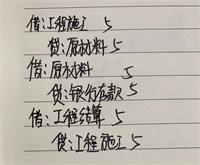 借:工程施工 5
贷:原材料 5
借:原材料 5
贷:银行存款 5
借:工程结算 5
贷:工程施工 5